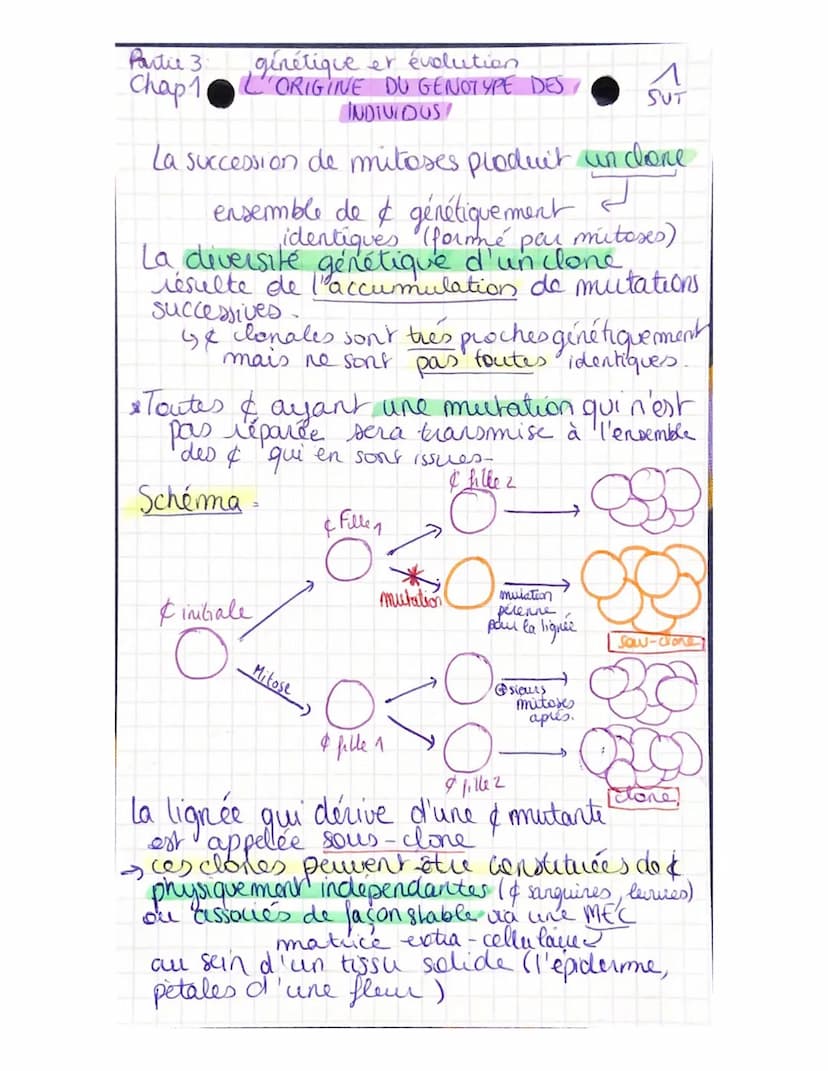 Partie 3: génétique et évolution
Chap 1 L'ORIGINE DU GENOTYPE DES
INDIVIDUS
1
SVT
La succession de mitoses produit un clone
ensemble de ¢ génétiquement
identiques (formé par mitoses)
La diversité génétique d'un clone
résulte de l'accumulation de mutations
successives.
↳ ¢ clonales sont très proches génétiquement
mais ne sont pas toutes identiques.
* Toutes ¢ ayant une mutation qui n'est
pas réparée sera transmise à l'ensemble
des ¢ qui en sont issues-
Schéma =
¢ fille 2
¢ Fille 1
mutation
mutation
pérenne
pour la lignée
¢ initiale
sous-clone
Mitose
⊕sieurs
mitoses
après.
¢ fille 1
¢ fille 2
clone
La lignée qui dérive d'une ¢ mutante
est appelée sous-clone
→ ces clones peuvent être constituées de ¢
physiquement indépendantes (¢ sanguines, levures)
ou associés de façon stable via une MEC
matrice extra-cellulaire
au sein d'un tissu solide (l'épiderme,
pétales d'une fleur)